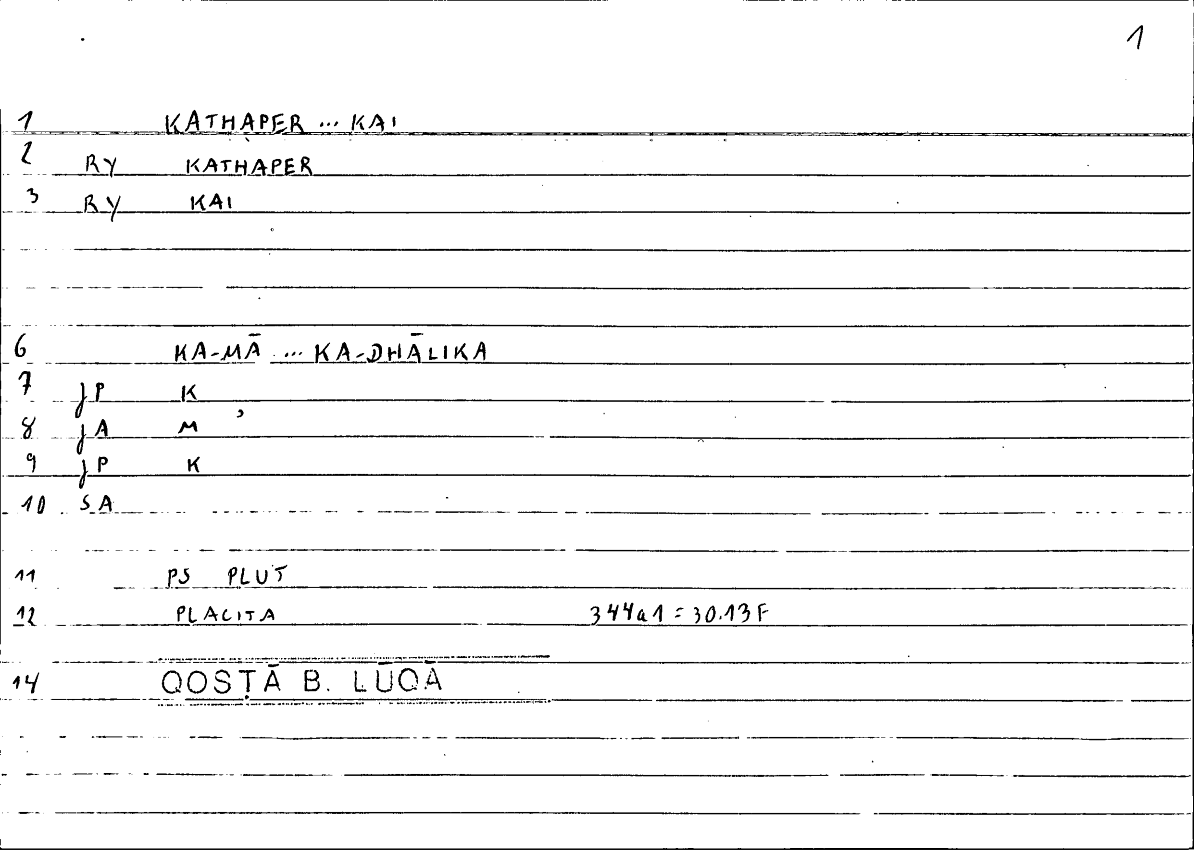 1
1 KATHAPER ... KAI
2 RY KATHAPER
3 RY KAI
6 KA-MĀ ... KA-DHĀLIKA
7 jP K
8 jA M
9 jP K
10 SA
11 PS PLUT
12 PLACITA 344a1 = 30.13F
14 QOSṬĀ B. LŪQĀ